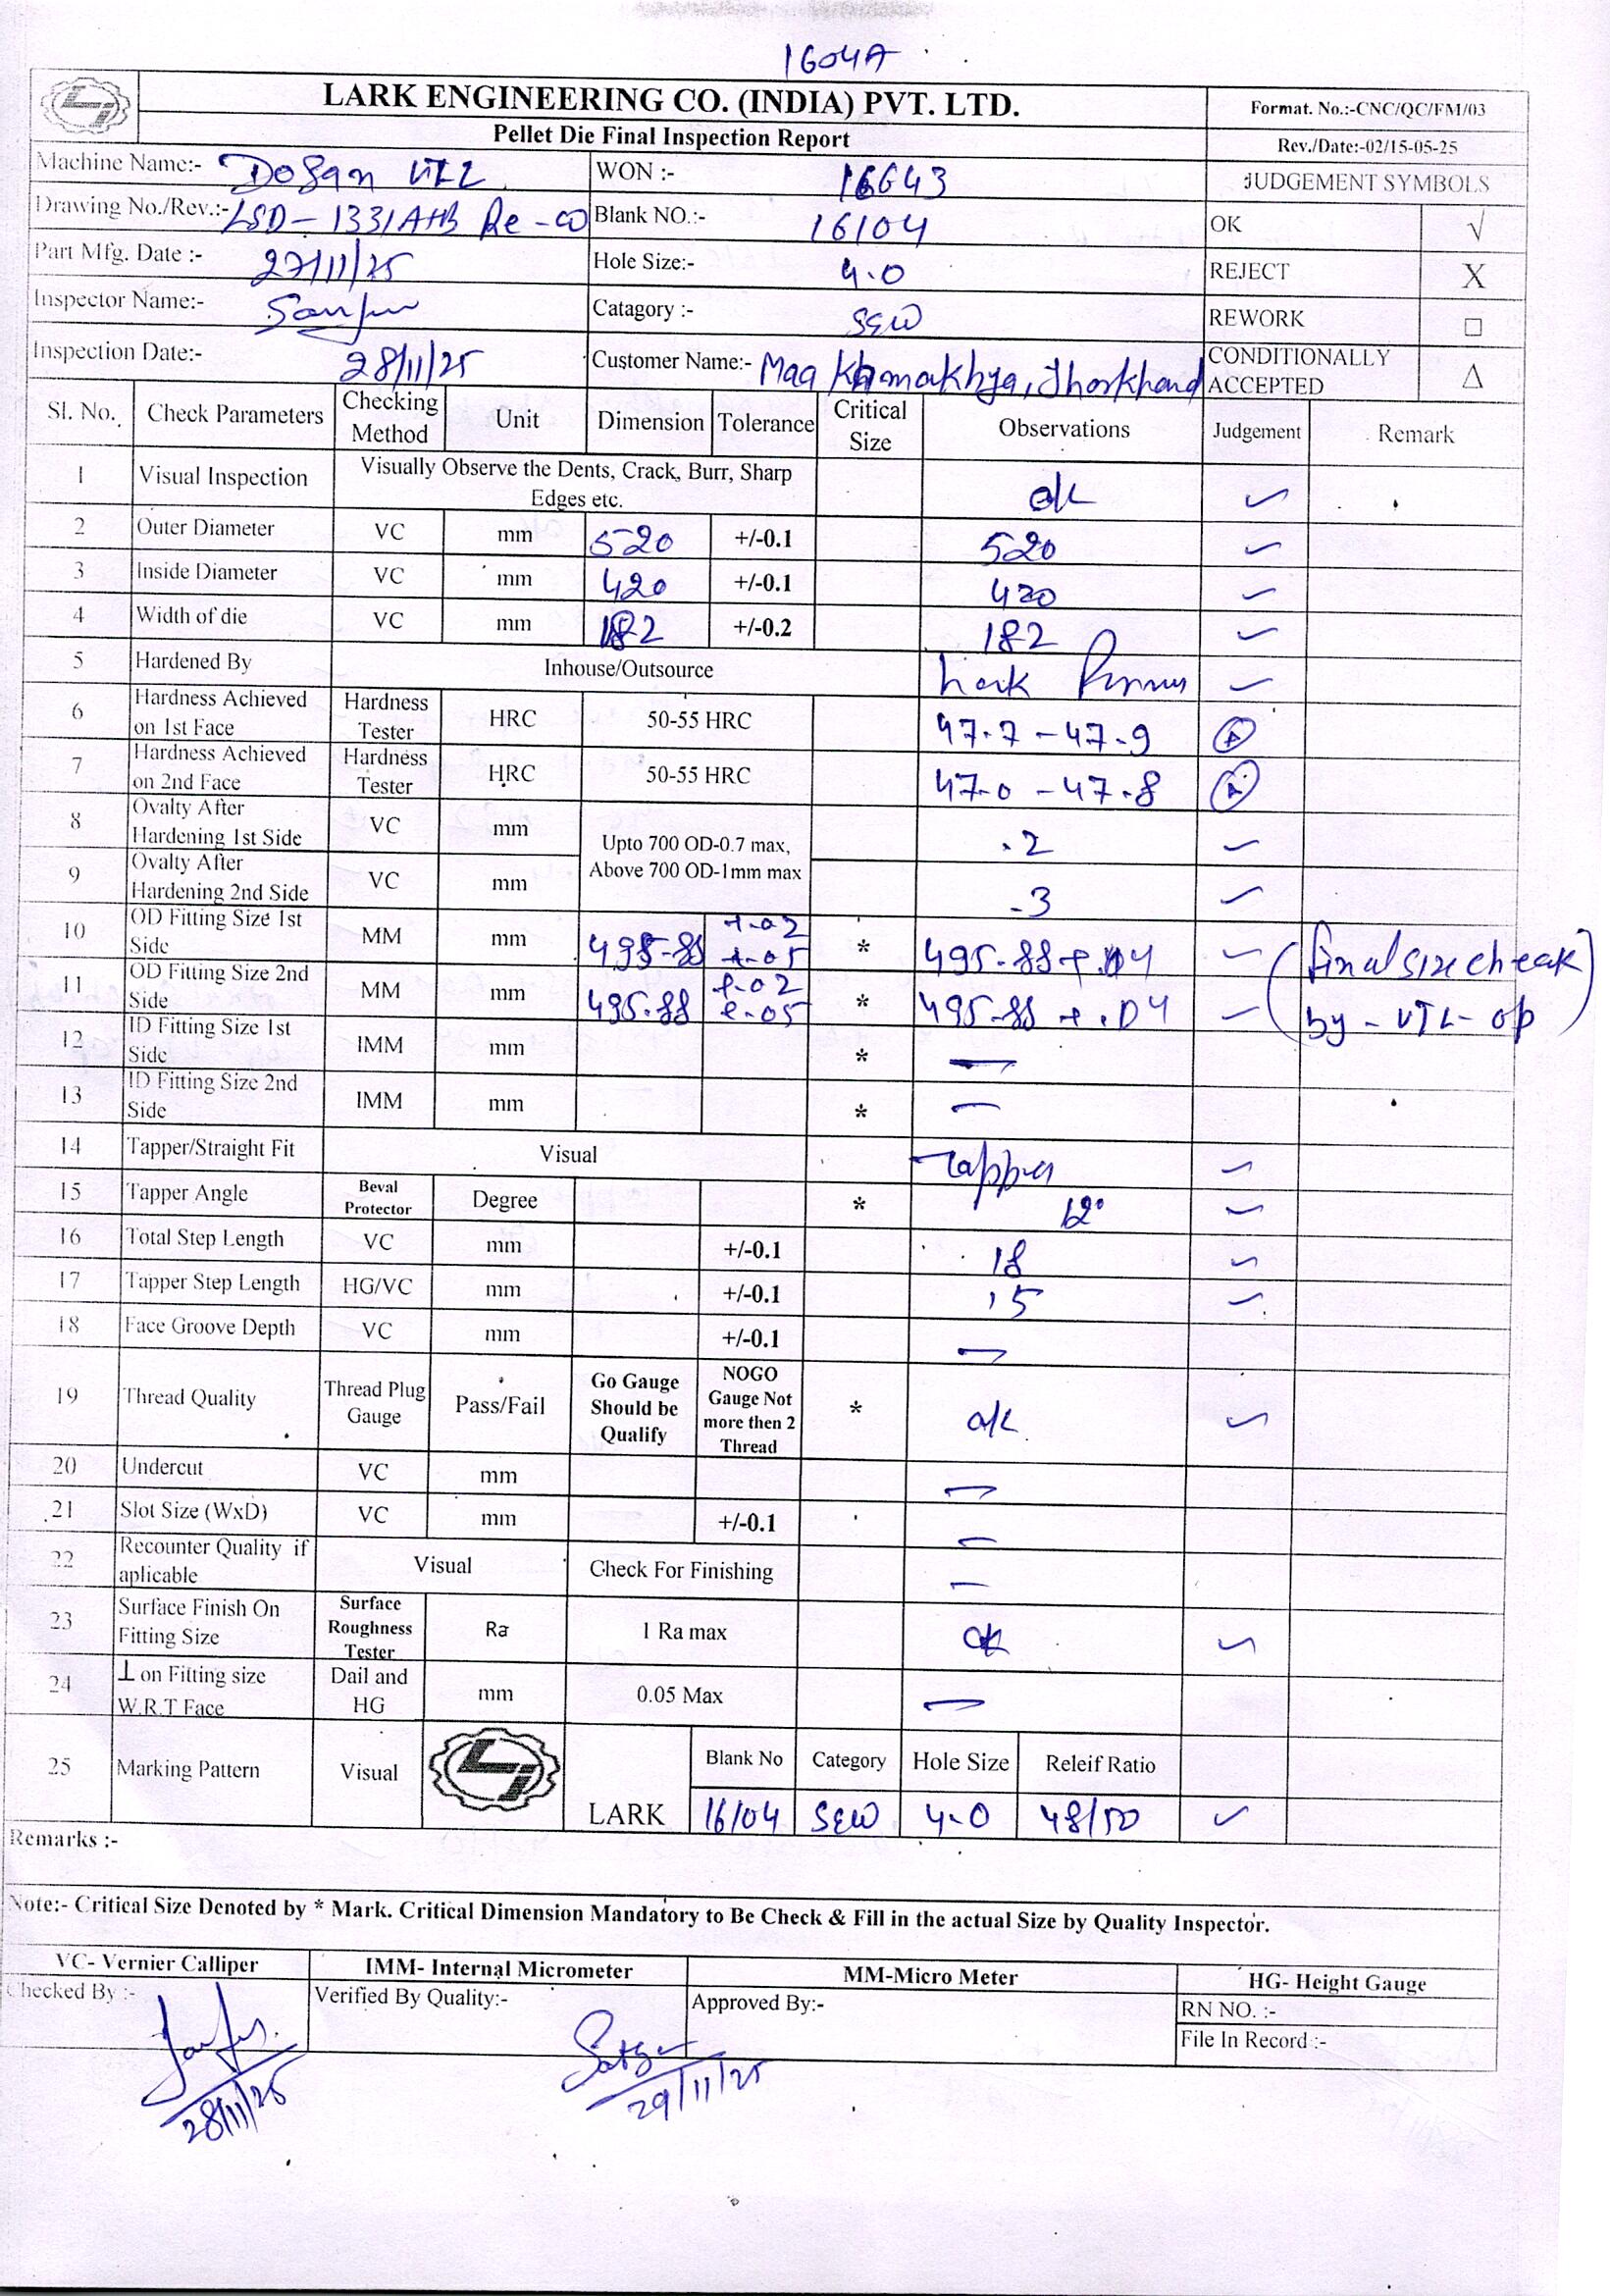 1604A
LARK ENGINEERING CO. (INDIA) PVT. LTD.
Format. No.:-CNC/QC/FM/03
Pellet Die Final Inspection Report
Rev./Date:-02/15-05-25
Machine Name:- Dosan VTL2 WON :- 16643 JUDGEMENT SYMBOLS
Drawing No./Rev.:- LSD-1331A+B Re-00 Blank NO.:- 16104 OK √
Part Mfg. Date :- 27/11/25 Hole Size:- 4.0 REJECT X
Inspector Name:- Catagory :- SEW REWORK □
Inspection Date:- 28/11/25 Customer Name:- Maa Khamakhya, Jharkhand CONDITIONALLY ACCEPTED Δ
Sl. No. Check Parameters Checking Method Unit Dimension Tolerance Critical Size Observations Judgement Remark
1 Visual Inspection Visually Observe the Dents, Crack, Burr, Sharp Edges etc. ok ✓
2 Outer Diameter VC mm 520 +/-0.1 520 ✓
3 Inside Diameter VC mm 420 +/-0.1 420 ✓
4 Width of die VC mm 182 +/-0.2 182 ✓
5 Hardened By Inhouse/Outsource Lark ✓
6 Hardness Achieved on 1st Face Hardness Tester HRC 50-55 HRC 47.7 - 47.9
7 Hardness Achieved on 2nd Face Hardness Tester HRC 50-55 HRC 47.0 - 47.8
8 Ovalty After Hardening 1st Side VC mm Upto 700 OD-0.7 max, Above 700 OD-1mm max .2 ✓
9 Ovalty After Hardening 2nd Side VC mm .3 ✓
10 OD Fitting Size 1st Side MM mm 495.88 +.02 +.05 * 495.88 + .04 ✓ (final size cheak
11 OD Fitting Size 2nd Side MM mm 495.88 +.02 +.05 * 495.88 + .04 ✓ by - VTL - op)
12 ID Fitting Size 1st Side IMM mm * —
13 ID Fitting Size 2nd Side IMM mm * —
14 Tapper/Straight Fit Visual Tapper ✓
15 Tapper Angle Beval Protector Degree * 12° ✓
16 Total Step Length VC mm +/-0.1 18 ✓
17 Tapper Step Length HG/VC mm +/-0.1 15 ✓
18 Face Groove Depth VC mm +/-0.1 —
19 Thread Quality Thread Plug Gauge Pass/Fail Go Gauge Should be Qualify NOGO Gauge Not more then 2 Thread * ok ✓
20 Undercut VC mm —
21 Slot Size (WxD) VC mm +/-0.1 —
22 Recounter Quality if aplicable Visual Check For Finishing —
23 Surface Finish On Fitting Size Surface Roughness Tester Ra 1 Ra max ok ✓
24 ⊥ on Fitting size W.R.T Face Dail and HG mm 0.05 Max —
25 Marking Pattern Visual LARK Blank No Category Hole Size Releif Ratio
16/04 SEW 4.0 48/50 ✓
Remarks :-
Note:- Critical Size Denoted by * Mark. Critical Dimension Mandatory to Be Check & Fill in the actual Size by Quality Inspector.
VC- Vernier Calliper IMM- Internal Micrometer MM-Micro Meter HG- Height Gauge
Checked By :- Verified By Quality:- Approved By:- RN NO. :-
File In Record :-
28/11/25 29/11/25